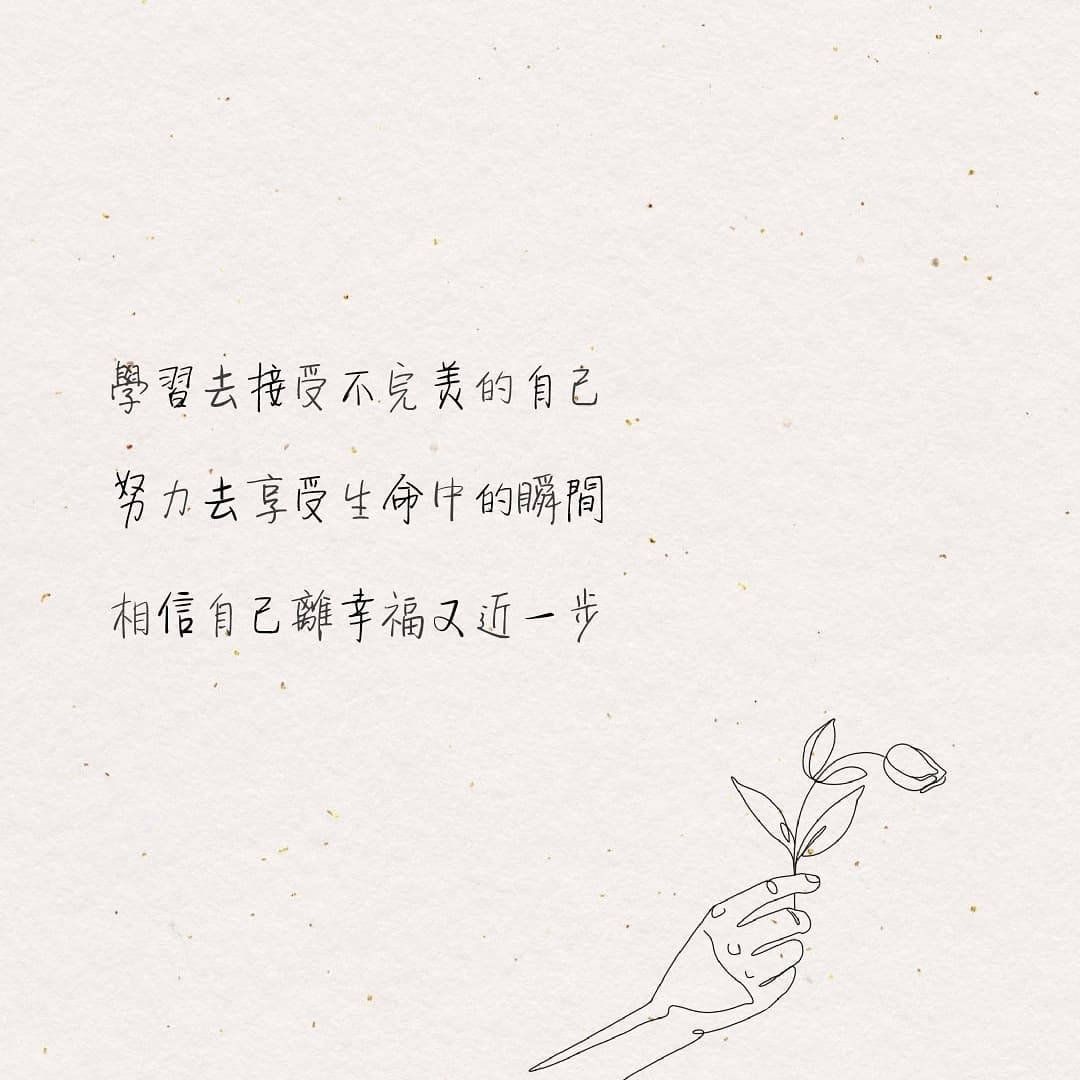 學習去接受不完美的自己
努力去享受生命中的瞬間
相信自己離幸福又近一步